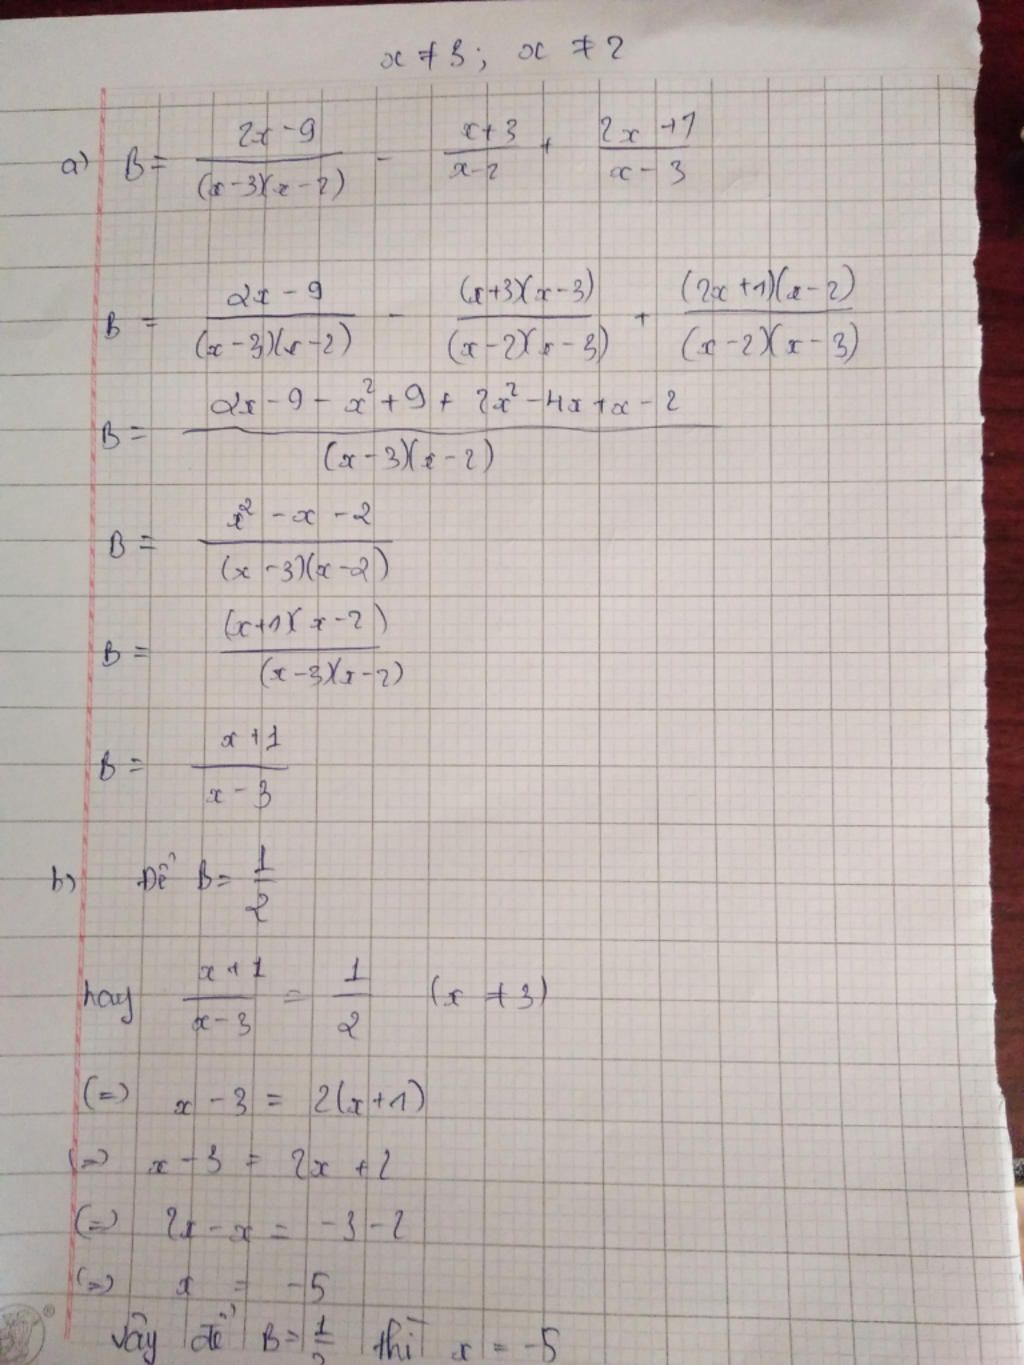 x ≠ 3 ; x ≠ 2
a) B = (2x - 9)/((x - 3)(x - 2)) - (x + 3)/(x - 2) + (2x + 1)/(x - 3)
B = (2x - 9)/((x - 3)(x - 2)) - ((x + 3)(x - 3))/((x - 2)(x - 3)) + ((2x + 1)(x - 2))/((x - 2)(x - 3))
B = (2x - 9 - x² + 9 + 2x² - 4x + x - 2)/((x - 3)(x - 2))
B = (x² - x - 2)/((x - 3)(x - 2))
B = ((x + 1)(x - 2))/((x - 3)(x - 2))
B = (x + 1)/(x - 3)
b) Để B = 1/2
hay (x + 1)/(x - 3) = 1/2 (x ≠ 3)
(=) x - 3 = 2(x + 1)
(=) x - 3 = 2x + 2
(=) 2x - x = -3 - 2
(=) x = -5
Vậy để B = 1/2 thì x = -5